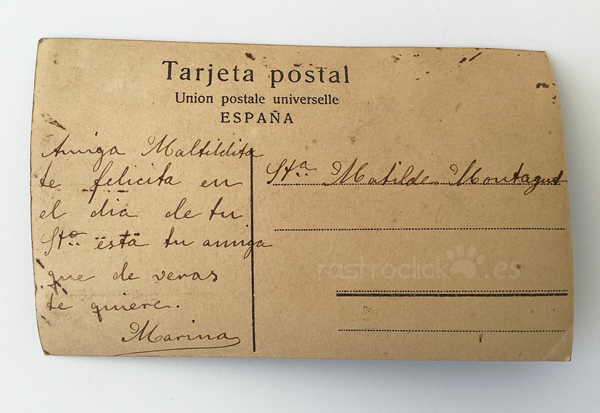 Tarjeta postal
Union postale universelle
ESPAÑA
Amiga Maltildita
te felicita en
el dia de tu
Sto. esta tu amiga
que de veras
te quiere.
Marina
Sta. Matilde Montagut
rastroclick.es